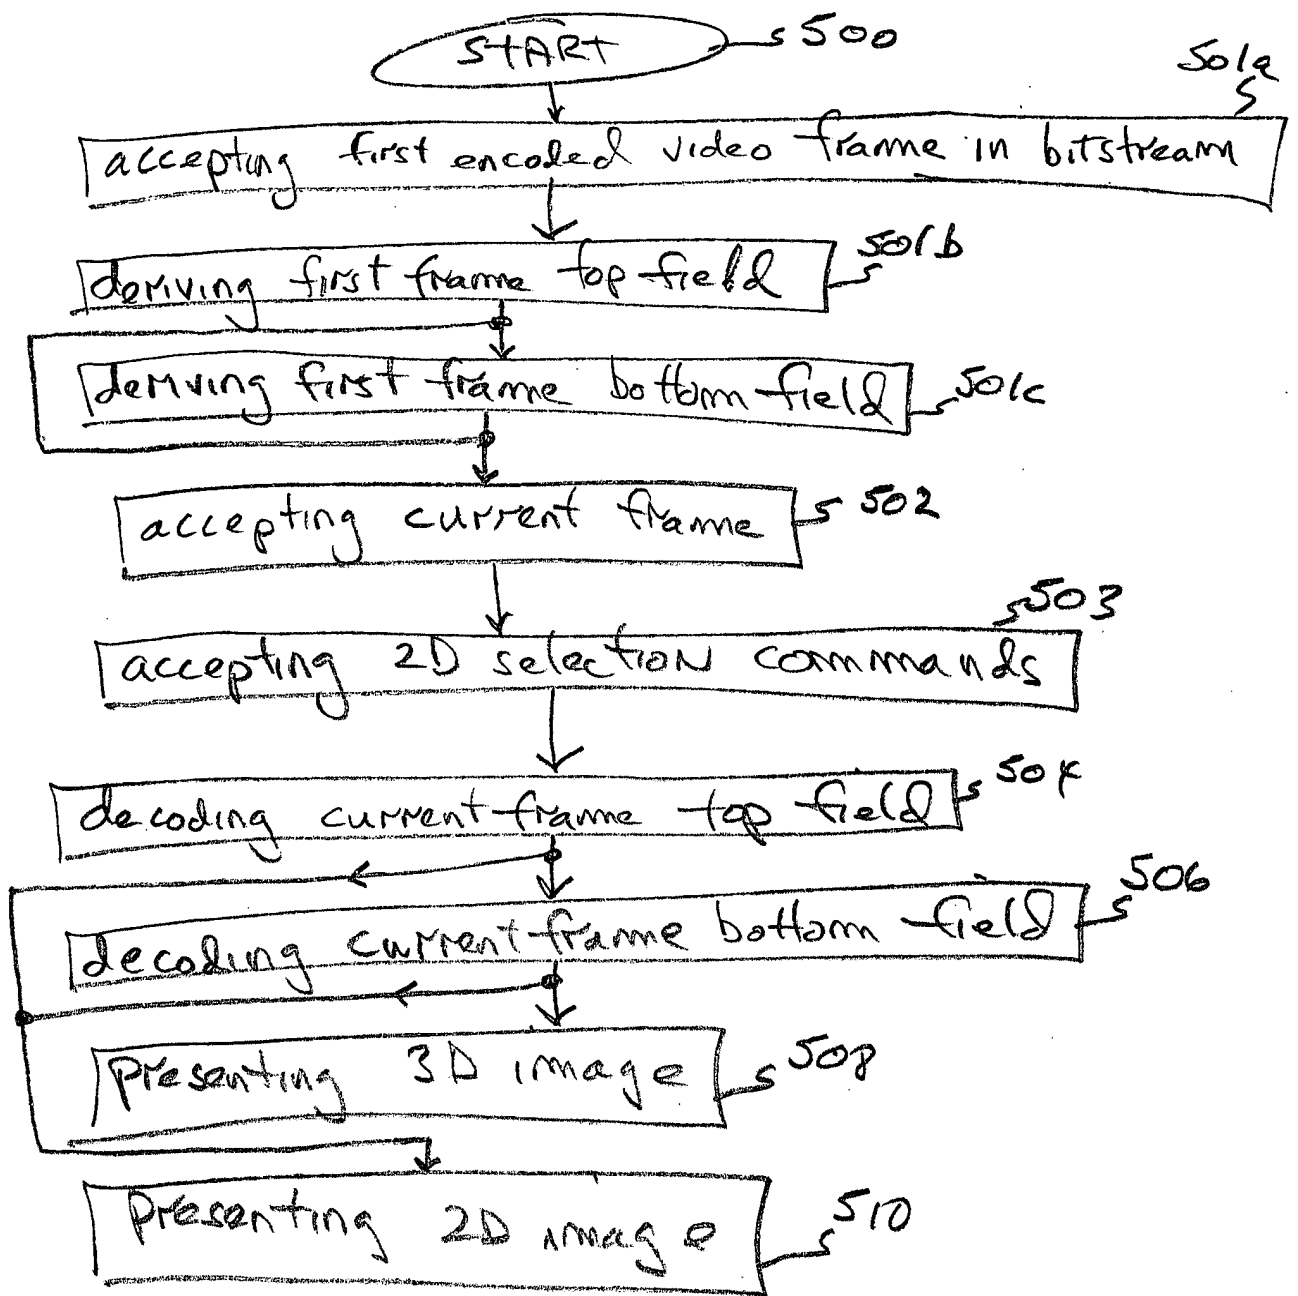 START 500
501a
accepting first encoded video frame in bitstream
501b
deriving first frame top field
deriving first frame bottom field 501c
accepting current frame 502
503
accepting 2D selection commands
504
decoding current frame top field
506
decoding current frame bottom field
presenting 3D image 508
presenting 2D image 510